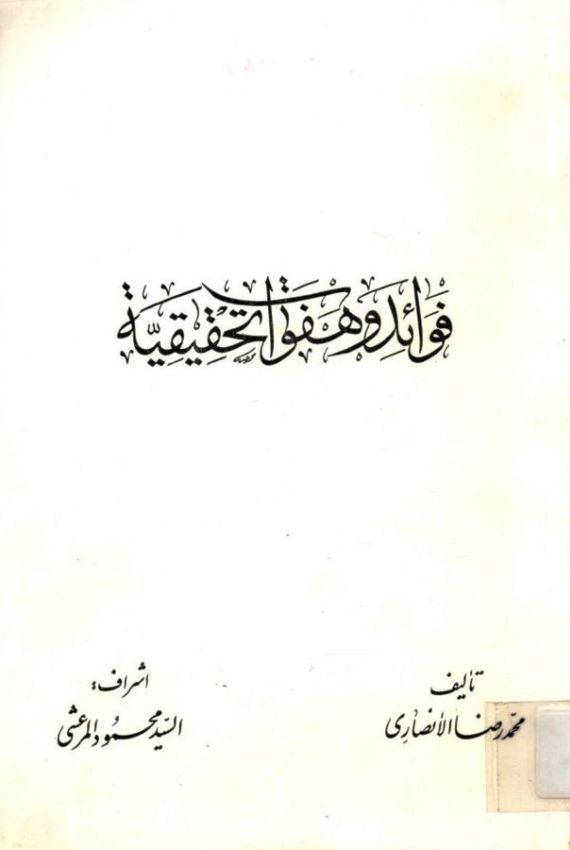 فَوَائِد وَهَفَوَات تَحقِيقِيَّة
تأليف
محمّد رضا الأنصاري
اشراف:
السيّد محمود المرعشي